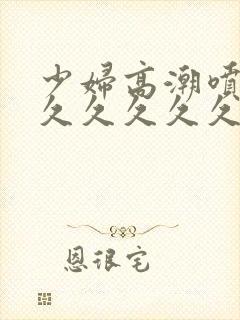 少婦高潮噴
久久久久久
恩很宅